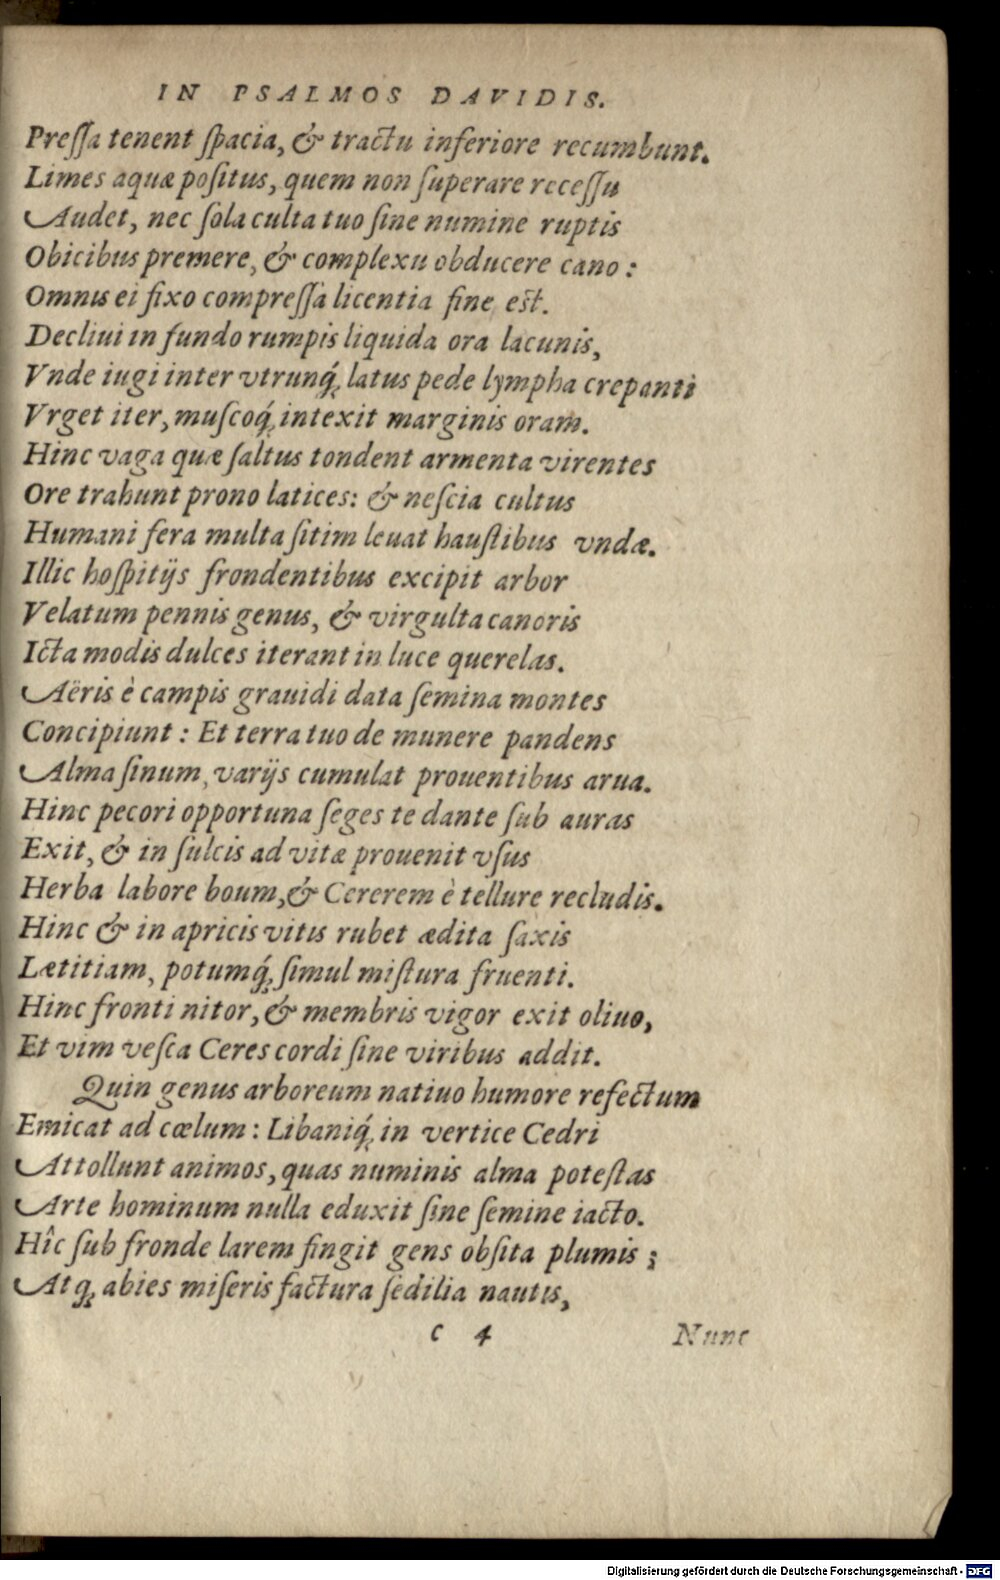 IN PSALMOS DAVIDIS.
Preſſa tenent ſpacia, & tractu inferiore recumbunt.
Limes aquæ poſitus, quem non ſuperare receſſu
Audet, nec ſola culta tuo ſine numine ruptis
Obicibus premere, & complexu obducere cano:
Omnis ei fixo compreſſa licentia fine est.
Decliui in fundo rumpis liquida ora lacunis,
Vnde iugi inter vtrunq́; latus pede lympha crepanti
Vrget iter, muſcoq́; intexit marginis oram.
Hinc vaga quæ ſaltus tondent armenta virentes
Ore trahunt prono latices: & neſcia cultus
Humani fera multa ſitim leuat hauſtibus vndæ.
Illic hoſpitijs frondentibus excipit arbor
Velatum pennis genus, & virgulta canoris
Icta modis dulces iterant in luce querelas.
Aëris è campis grauidi data ſemina montes
Concipiunt: Et terra tuo de munere pandens
Alma ſinum, varijs cumulat prouentibus arua.
Hinc pecori opportuna ſeges te dante ſub auras
Exit, & in ſulcis ad vitæ prouenit vſus
Herba labore boum, & Cererem è tellure recludis.
Hinc & in apricis vitis rubet ædita ſaxis
Lætitiam, potumq́; ſimul miſtura fruenti.
Hinc fronti nitor, & membris vigor exit oliuo,
Et vim veſca Ceres cordi ſine viribus addit.
Quin genus arboreum natiuo humore refectum
Emicat ad cœlum: Libaniq́; in vertice Cedri
Attollunt animos, quas numinis alma poteſtas
Arte hominum nulla eduxit ſine ſemine iacto.
Hîc ſub fronde larem fingit gens obſita plumis;
Atq; abies miſeris factura ſedilia nautis,
c 4 Nunc
Digitalisierung gefördert durch die Deutsche Forschungsgemeinschaft - DFG